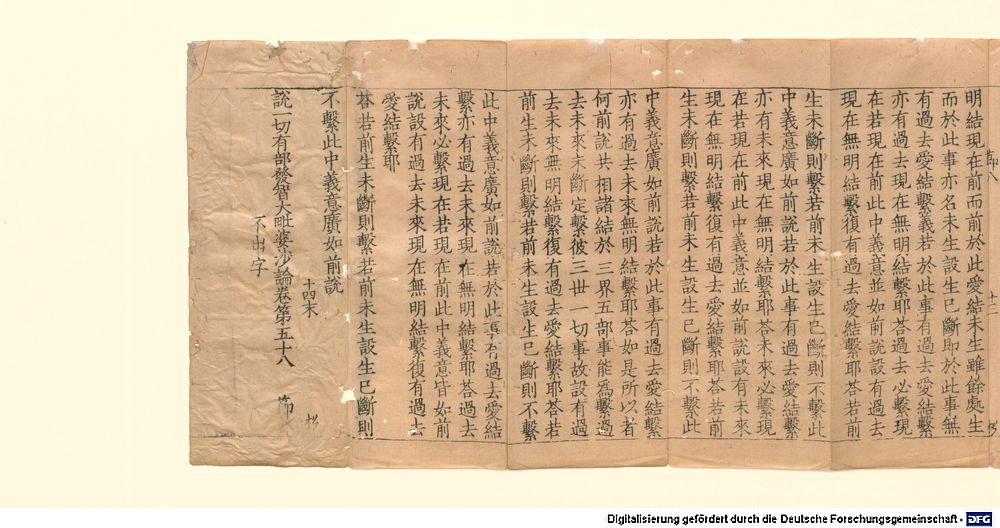 明結現在前而前於此愛結未生雖餘處生
而於此事亦名未生設生已斷即於此事無
有過去愛結繫義若於此事有過去愛結繫
亦有過去現在無明結繫耶荅過去必繫現
在若現在前此中義意並如前說設有過去
現在無明結繫復有過去愛結繫耶荅若前
生未斷則繫若前未生設生已斷則不繫此
中義意廣如前說若於此事有過去愛結繫
亦有未來現在無明結繫耶荅未來必繫現
在若現在前此中義意並如前說設有未來
現在無明結繫復有過去愛結繫耶荅若前
生未斷則繫若前未生設生已斷則不繫此
中義意廣如前說若於此事有過去愛結繫
亦有過去未來無明結繫耶荅如是所以者
何前說共相諸結於三界五部事能爲繫過
去未來未斷定繫彼三世一切事故設有過
去未來無明結繫復有過去愛結繫耶荅若
前生未斷則繫若前未生設生已斷則不繫
此中義意廣如前說若於此事有過去愛結
繫亦有過去未來現在無明結繫耶荅過去
未來必繫現在若現在前此中義意皆如前
說設有過去未來現在無明結繫復有過去
愛結繫耶
荅若前生未斷則繫若前未生設生已斷則
不繫此中義意廣如前說
十四末
說一切有部發智大毗婆沙論卷第五十八
不出字
Digitalisierung gefördert durch die Deutsche Forschungsgemeinschaft - DFG